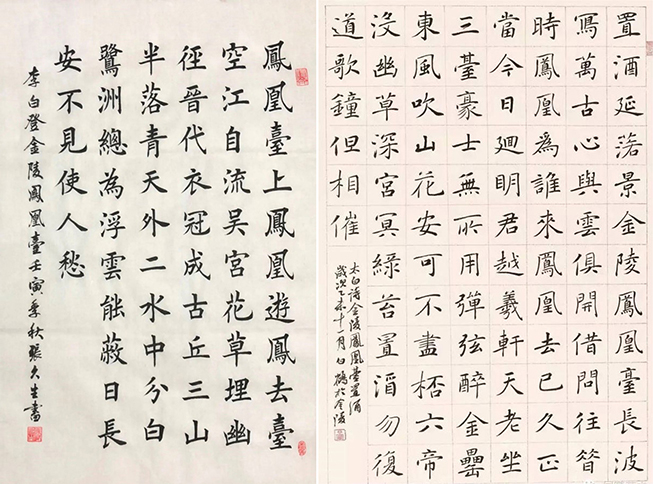 鳳凰臺上鳳凰遊鳳去臺
空江自流吳宮花草埋幽
徑晉代衣冠成古丘三山
半落青天外二水中分白
鷺洲總為浮雲能蔽日長
安不見使人愁
李白登金陵鳳凰臺壬寅季秋張久生書
置酒延落景金陵鳳凰臺長波
寫萬古心與雲俱開借問往昔
時鳳凰為誰來鳳凰去已久正
當今日迴明君越羲軒天老坐
三臺豪士無所用彈弦醉金罍
東風吹山花安可不盡桮六帝
沒幽草深宮冥綠苔置酒勿復
道歌鐘但相催
太白詩金陵鳳凰臺置酒
歲次乙未十一月白鶴於金陵